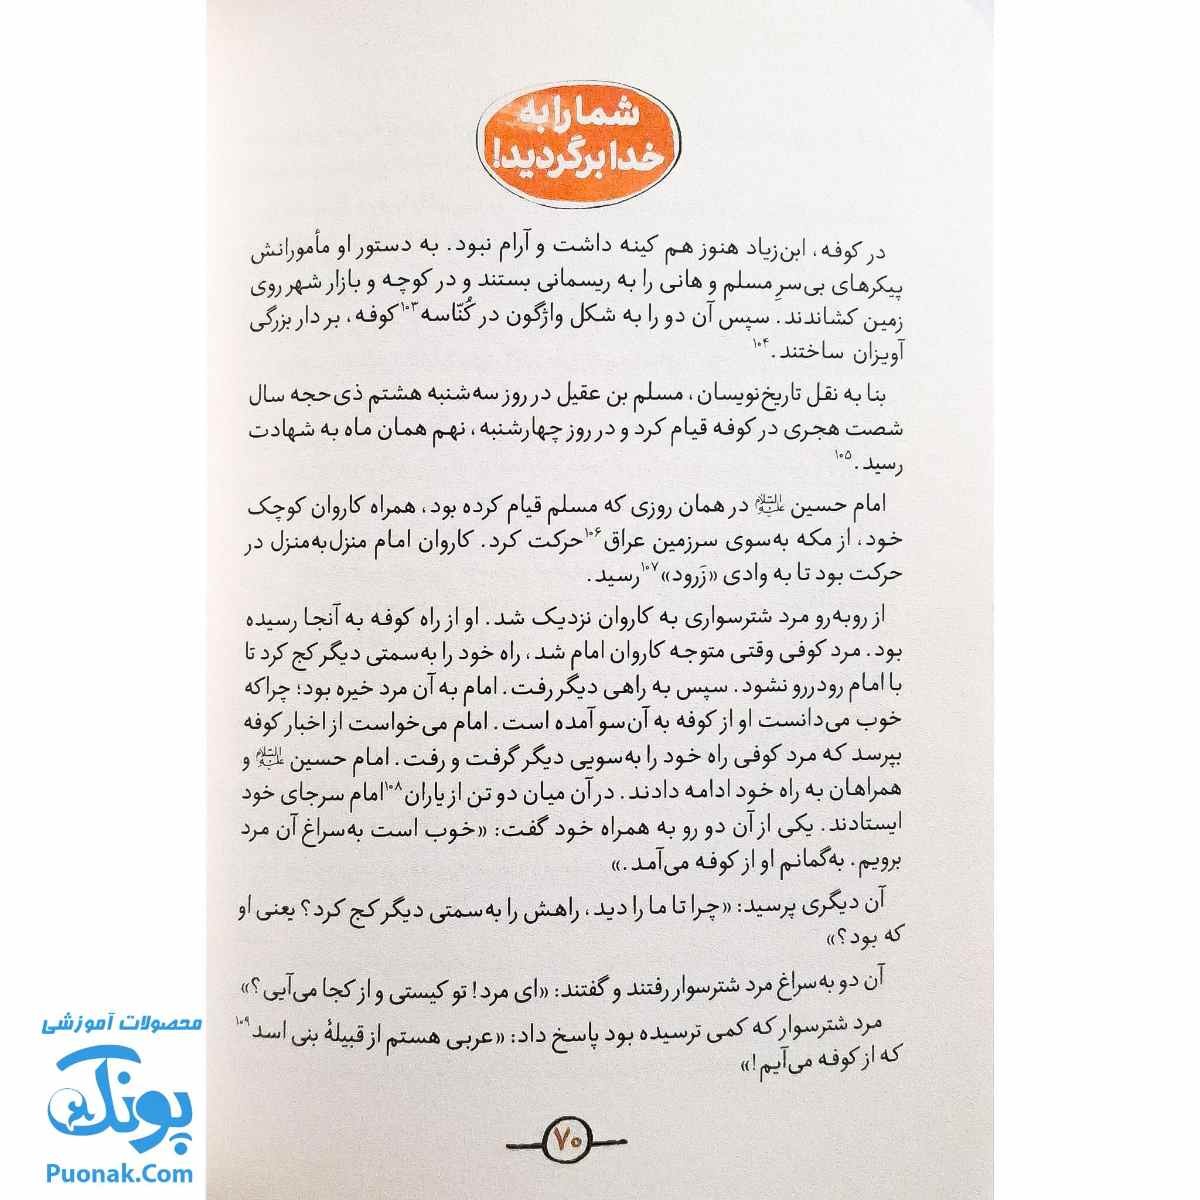 شما را به
خدا برگردید!
در کوفه، ابن‌زیاد هنوز هم کینه داشت و آرام نبود. به دستور او مأمورانش
پیکرهای بی‌سرِ مسلم و هانی را به ریسمانی بستند و در کوچه و بازار شهر روی
زمین کشاندند. سپس آن دو را به شکل واژگون در کُنّاسه۱۰۳ کوفه، بر دار بزرگی
آویزان ساختند.۱۰۴
بنا به نقل تاریخ‌نویسان، مسلم بن عقیل در روز سه‌شنبه هشتم ذی‌حجه سال
شصت هجری در کوفه قیام کرد و در روز چهارشنبه، نهم همان ماه به شهادت
رسید.۱۰۵
امام حسین علیه‌السلام در همان روزی که مسلم قیام کرده بود، همراه کاروان کوچک
خود، از مکه به‌سوی سرزمین عراق۱۰۶ حرکت کرد. کاروان امام منزل‌به‌منزل در
حرکت بود تا به وادی «زَرود»۱۰۷ رسید.
از روبه‌رو مرد شترسواری به کاروان نزدیک شد. او از راه کوفه به آنجا رسیده
بود. مرد کوفی وقتی متوجه کاروان امام شد، راه خود را به‌سمتی دیگر کج کرد تا
با امام رودررو نشود. سپس به راهی دیگر رفت. امام به آن مرد خیره بود؛ چراکه
خوب می‌دانست او از کوفه به آن‌سو آمده است. امام می‌خواست از اخبار کوفه
بپرسد که مرد کوفی راه خود را به‌سویی دیگر گرفت و رفت. امام حسین علیه‌السلام و
همراهان به راه خود ادامه دادند. در آن میان دو تن از یاران۱۰۸ امام سرجای خود
ایستادند. یکی از آن دو رو به همراه خود گفت: «خوب است به‌سراغ آن مرد
برویم. به‌گمانم او از کوفه می‌آمد.»
آن دیگری پرسید: «چرا تا ما را دید، راهش را به‌سمتی دیگر کج کرد؟ یعنی او
که بود؟»
آن دو به‌سراغ مرد شترسوار رفتند و گفتند: «ای مرد! تو کیستی و از کجا می‌آیی؟»
مرد شترسوار که کمی ترسیده بود پاسخ داد: «عربی هستم از قبیلهٔ بنی اسد۱۰۹
که از کوفه می‌آیم!»
۷۰
محصولات آموزشی
پونک
Puonak.Com